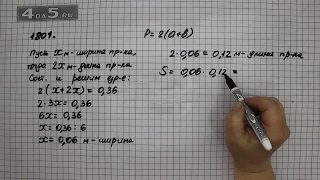 4DO5.RU
1801.
P=2(a+b)
Пусть x м-ширина пр-ка,
тогда 2x м-длина пр-ка
Сост. и решим ур-е:
2(x+2x)=0,36
2·3x=0,36
6x=0,36
x=0,36:6
x=0,06 м-ширина
2·0,06=0,12 м-длина пр-ка
S=0,06·0,12=